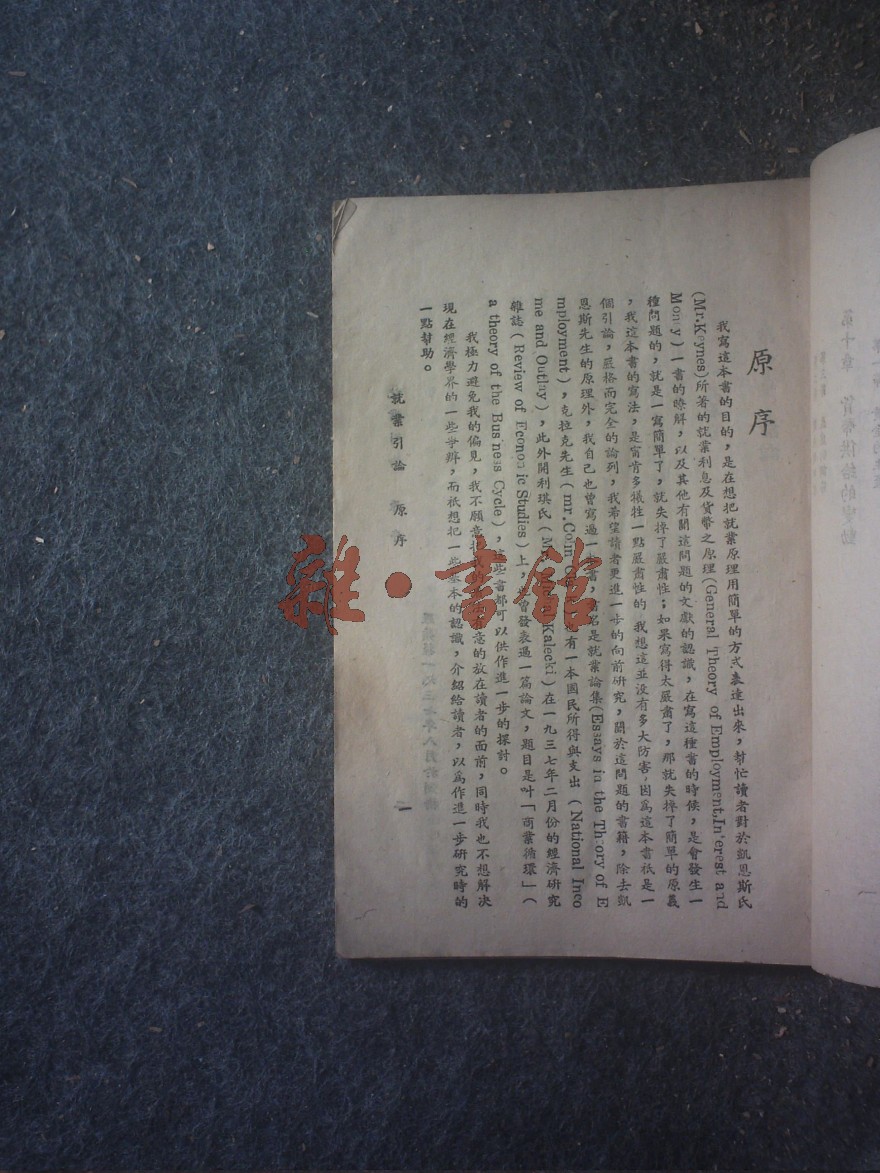 原序
我寫這本書的目的，是在想把就業原理用簡單的方式表達出來，幫忙讀者對於凱恩斯氏
(Mr.Keynes)所著的就業利息及貨幣之原理(General Theory of Employment,In'erest and
Mon y)一書的瞭解，以及其他有關這問題的文獻的認識，在寫這種書的時候，是會發生一
種問題的，就是一寫簡單了，就失掉了嚴肅性；如果寫得太嚴肅了，那就失掉了簡單的原義
，我這本書的寫法，是寧肯多犧牲一點嚴肅性的 我想這並没有多大防害，因爲這本書祇是一
個引論，嚴格而完全的論列，我希望讀者更進一步的向前研究，關於這問題的書籍，除去凱
恩斯先生的原理外，我自己也曾寫過一 書， 名是就業論集(Essays in the Th ory of E
mployment)，克拉克先生(mr.Colin 有一本國民所得與支出 (National Inco
me and Outlay)，此外開利琪氏(M Kalecki)在一九三七年二月份的經濟研究
雜誌(Review of Econo ic Studies)上， 曾發表過一篇論文，題目是叫「商業循環」(
a theory of the Bus ness Cycle)， 些書都可以供作進一步的探討。
我極力避免我的偏見，我不願意把 意的放在讀者的面前，同時我也不想解决
現在經濟學界的一些爭辨，而祇想把一些基本的認識，介紹給讀者，以爲作進一步研究時的
一點幫助。
就業引論 原序
一
第十章 貨幣供給的變動
雜·書館